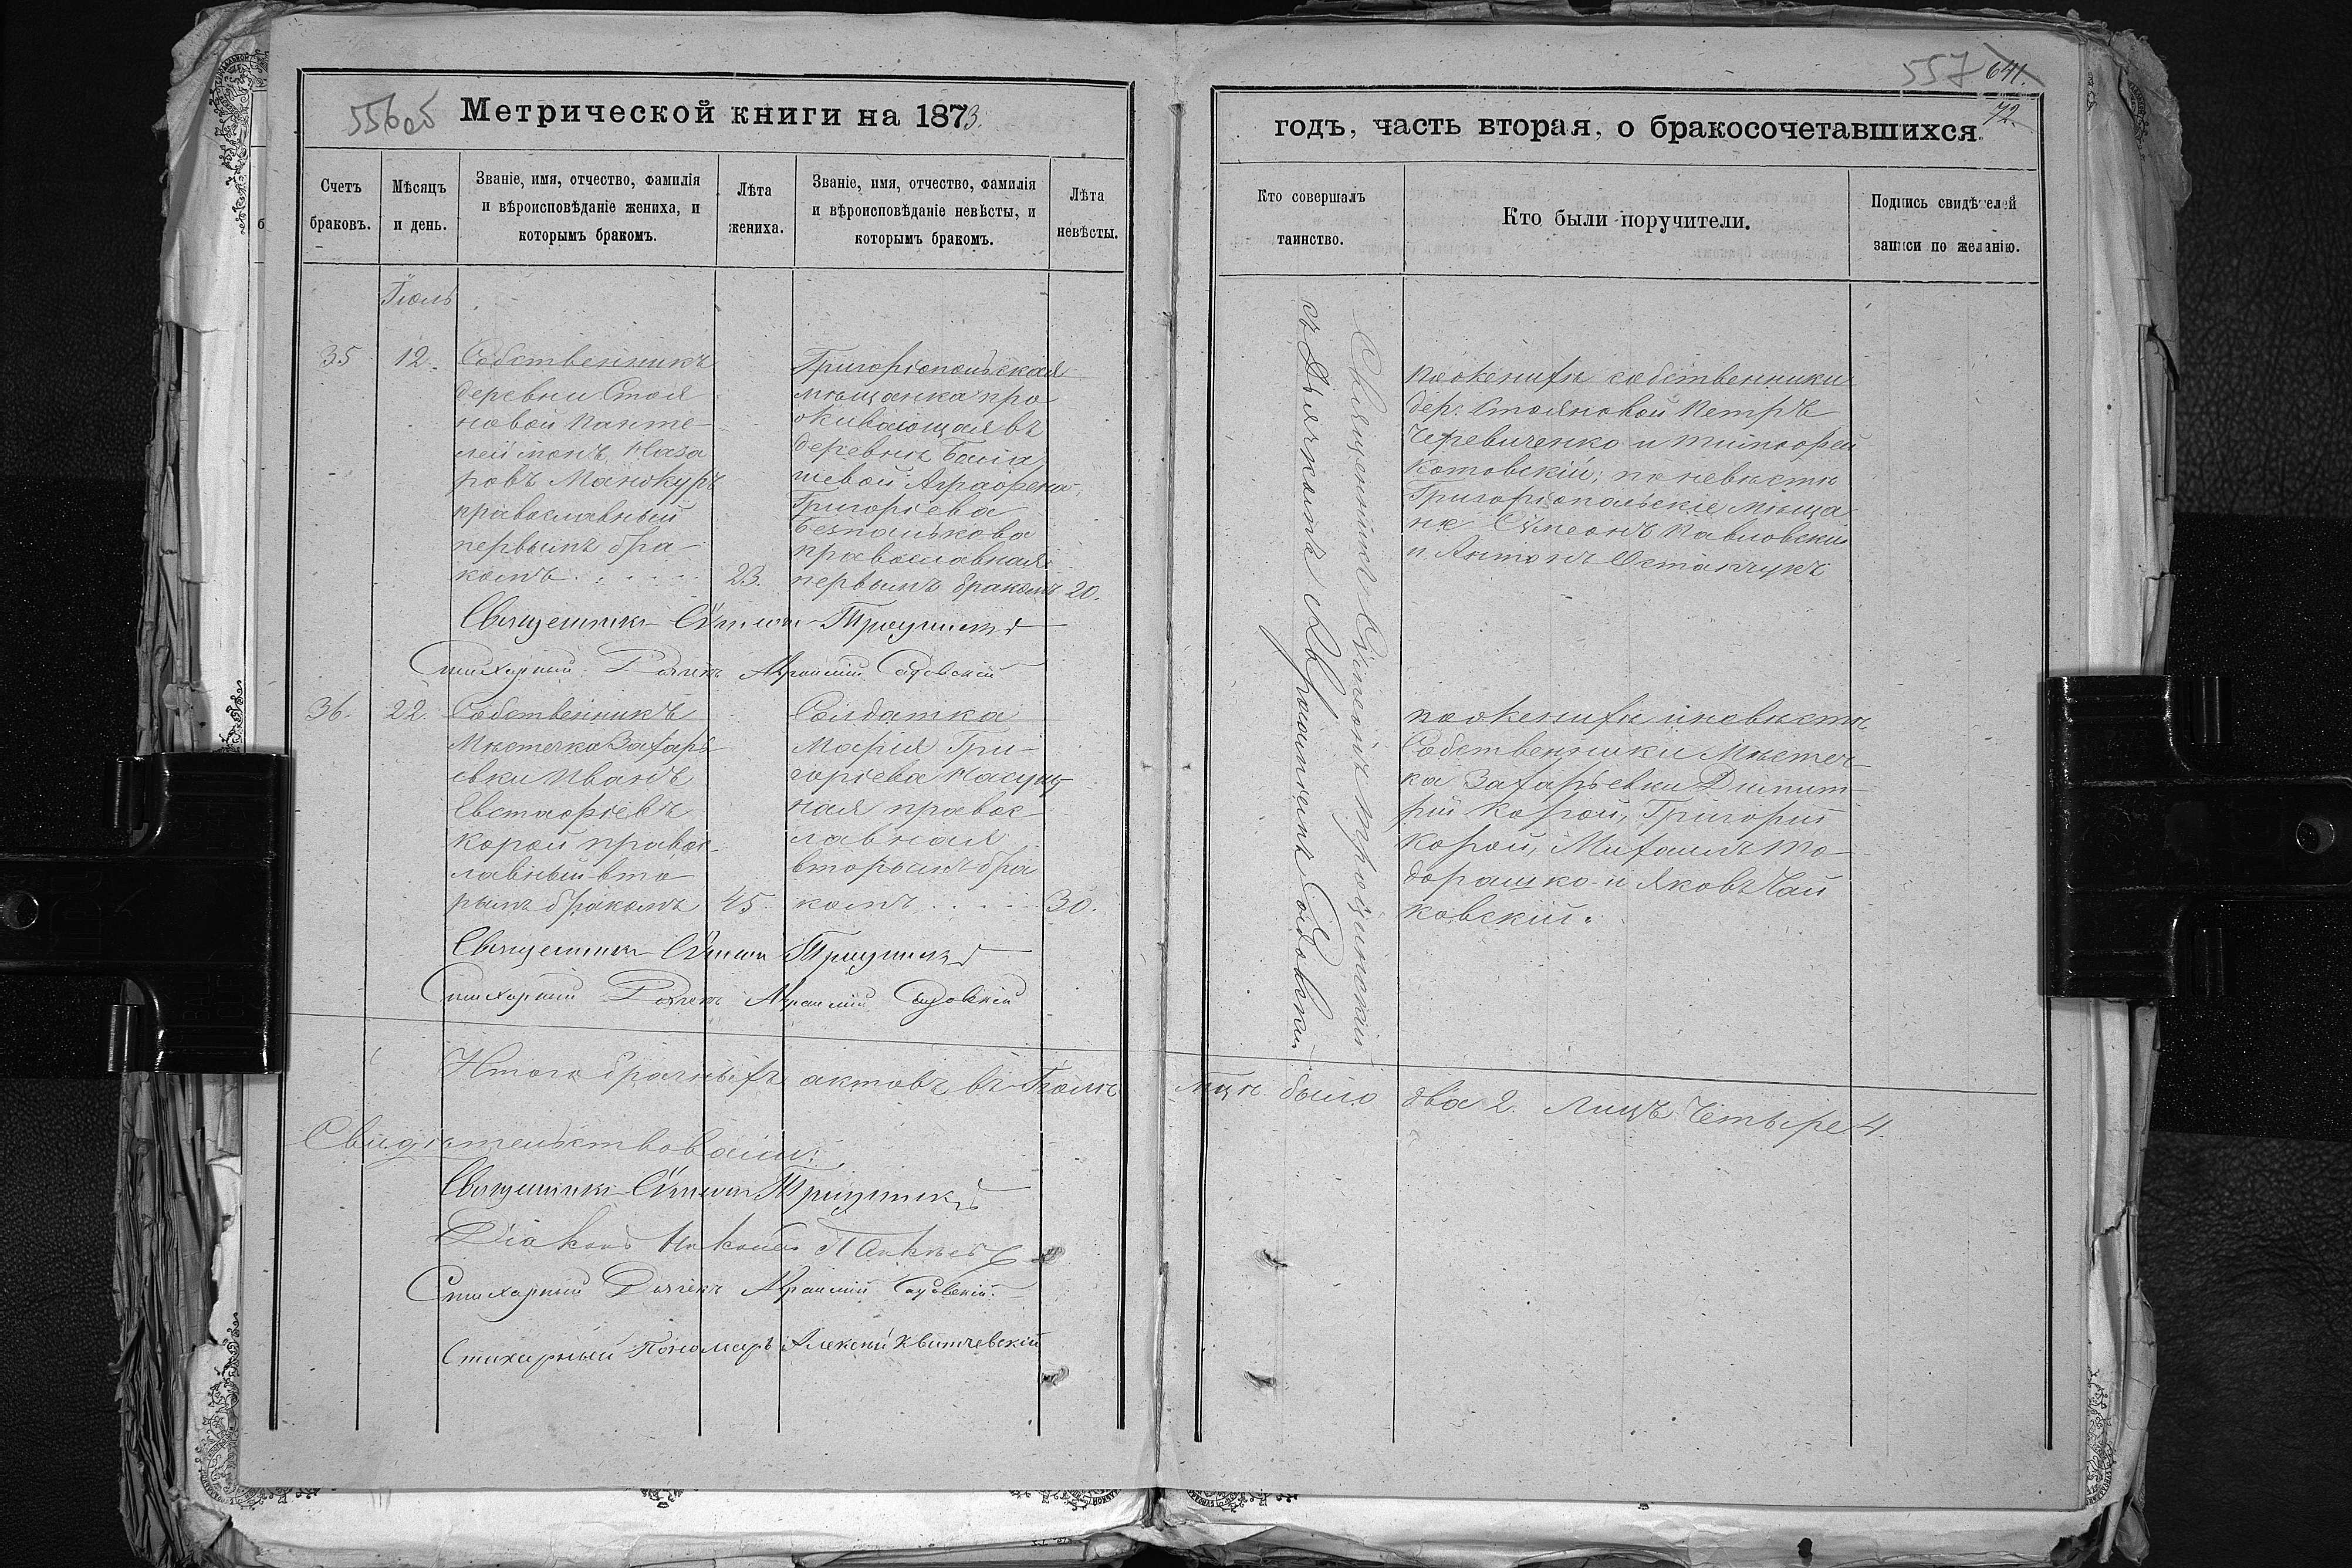 556об
Метрической книги на 1873.
Счетъ браковъ.
Мѣсяцъ и день.
Званіе, имя, отчество, фамилія и вѣроисповѣданіе жениха, и которымъ бракомъ.
Лѣта жениха.
Званіе, имя, отчество, фамилія и вѣроисповѣданіе невѣсты, и которымъ бракомъ.
Лѣта невѣсты.
Іюль
35
12.
Собственникъ
деревни Стоя
новой Панте-
леймонъ Наза
ровъ Манокуръ
православный
первымъ бра-
комъ
23.
Григоріопольская
мѣщанка про
живающая въ
деревнѣ Бала
шевой Аграфена
Григоріева
Безпалькова
православная
первымъ бракомъ
20.
Священникъ Сѵмеонъ Троцинскій
Стихарный Дьячекъ Авраамій Садовскій
36.
22.
Собственникъ
Мѣстечка Захарь-
евки Иванъ
Евстафіевъ
Корой правос-
лавный вто
рымъ бракомъ
45.
Солдатка
Марія Гри-
горіева
ная правос-
лавная
вторымъ бра
комъ
30.
Священникъ Сѵмеонъ Троцинскій
Стихарный Дьячекъ Авраамій Садовскій
Итого брачныхъ актовъ въ Іюлѣ
Свидѣтельствовали:
Священникъ Сѵмеонъ Троцинскій
Діаконъ Николай
Стихарный Дьячекъ Авраамій Садовскій.
Стихарный Пономарь Алексѣй Квитчевскій
557
641.
72.
годъ, часть вторая, о бракосочетавшихся.
Кто совершалъ таинство.
Кто были поручители.
Подпись свидѣтелей записи по желанію.
Священникъ Сѵмеонъ Троцинскій
съ Дьячкомъ Авраамiемъ Садовскимъ
По женихѣ собственники
дер: Стояновой Петръ
Черевиченко и Тимофей
Котовскій; по невѣстѣ
Григоріопольскіе мѣща
не Сѵмеонъ Павловскій
и Антонъ Остапчукъ
По женихѣ и невѣстѣ
Собственники Мѣстеч-
ка Захарьевки Димит-
рій Корой, Григорій
Корой, Михаилъ То-
дорашко и Яковъ Чай
ковскій.
мцѣ было два 2. Лицъ Четыре 4.